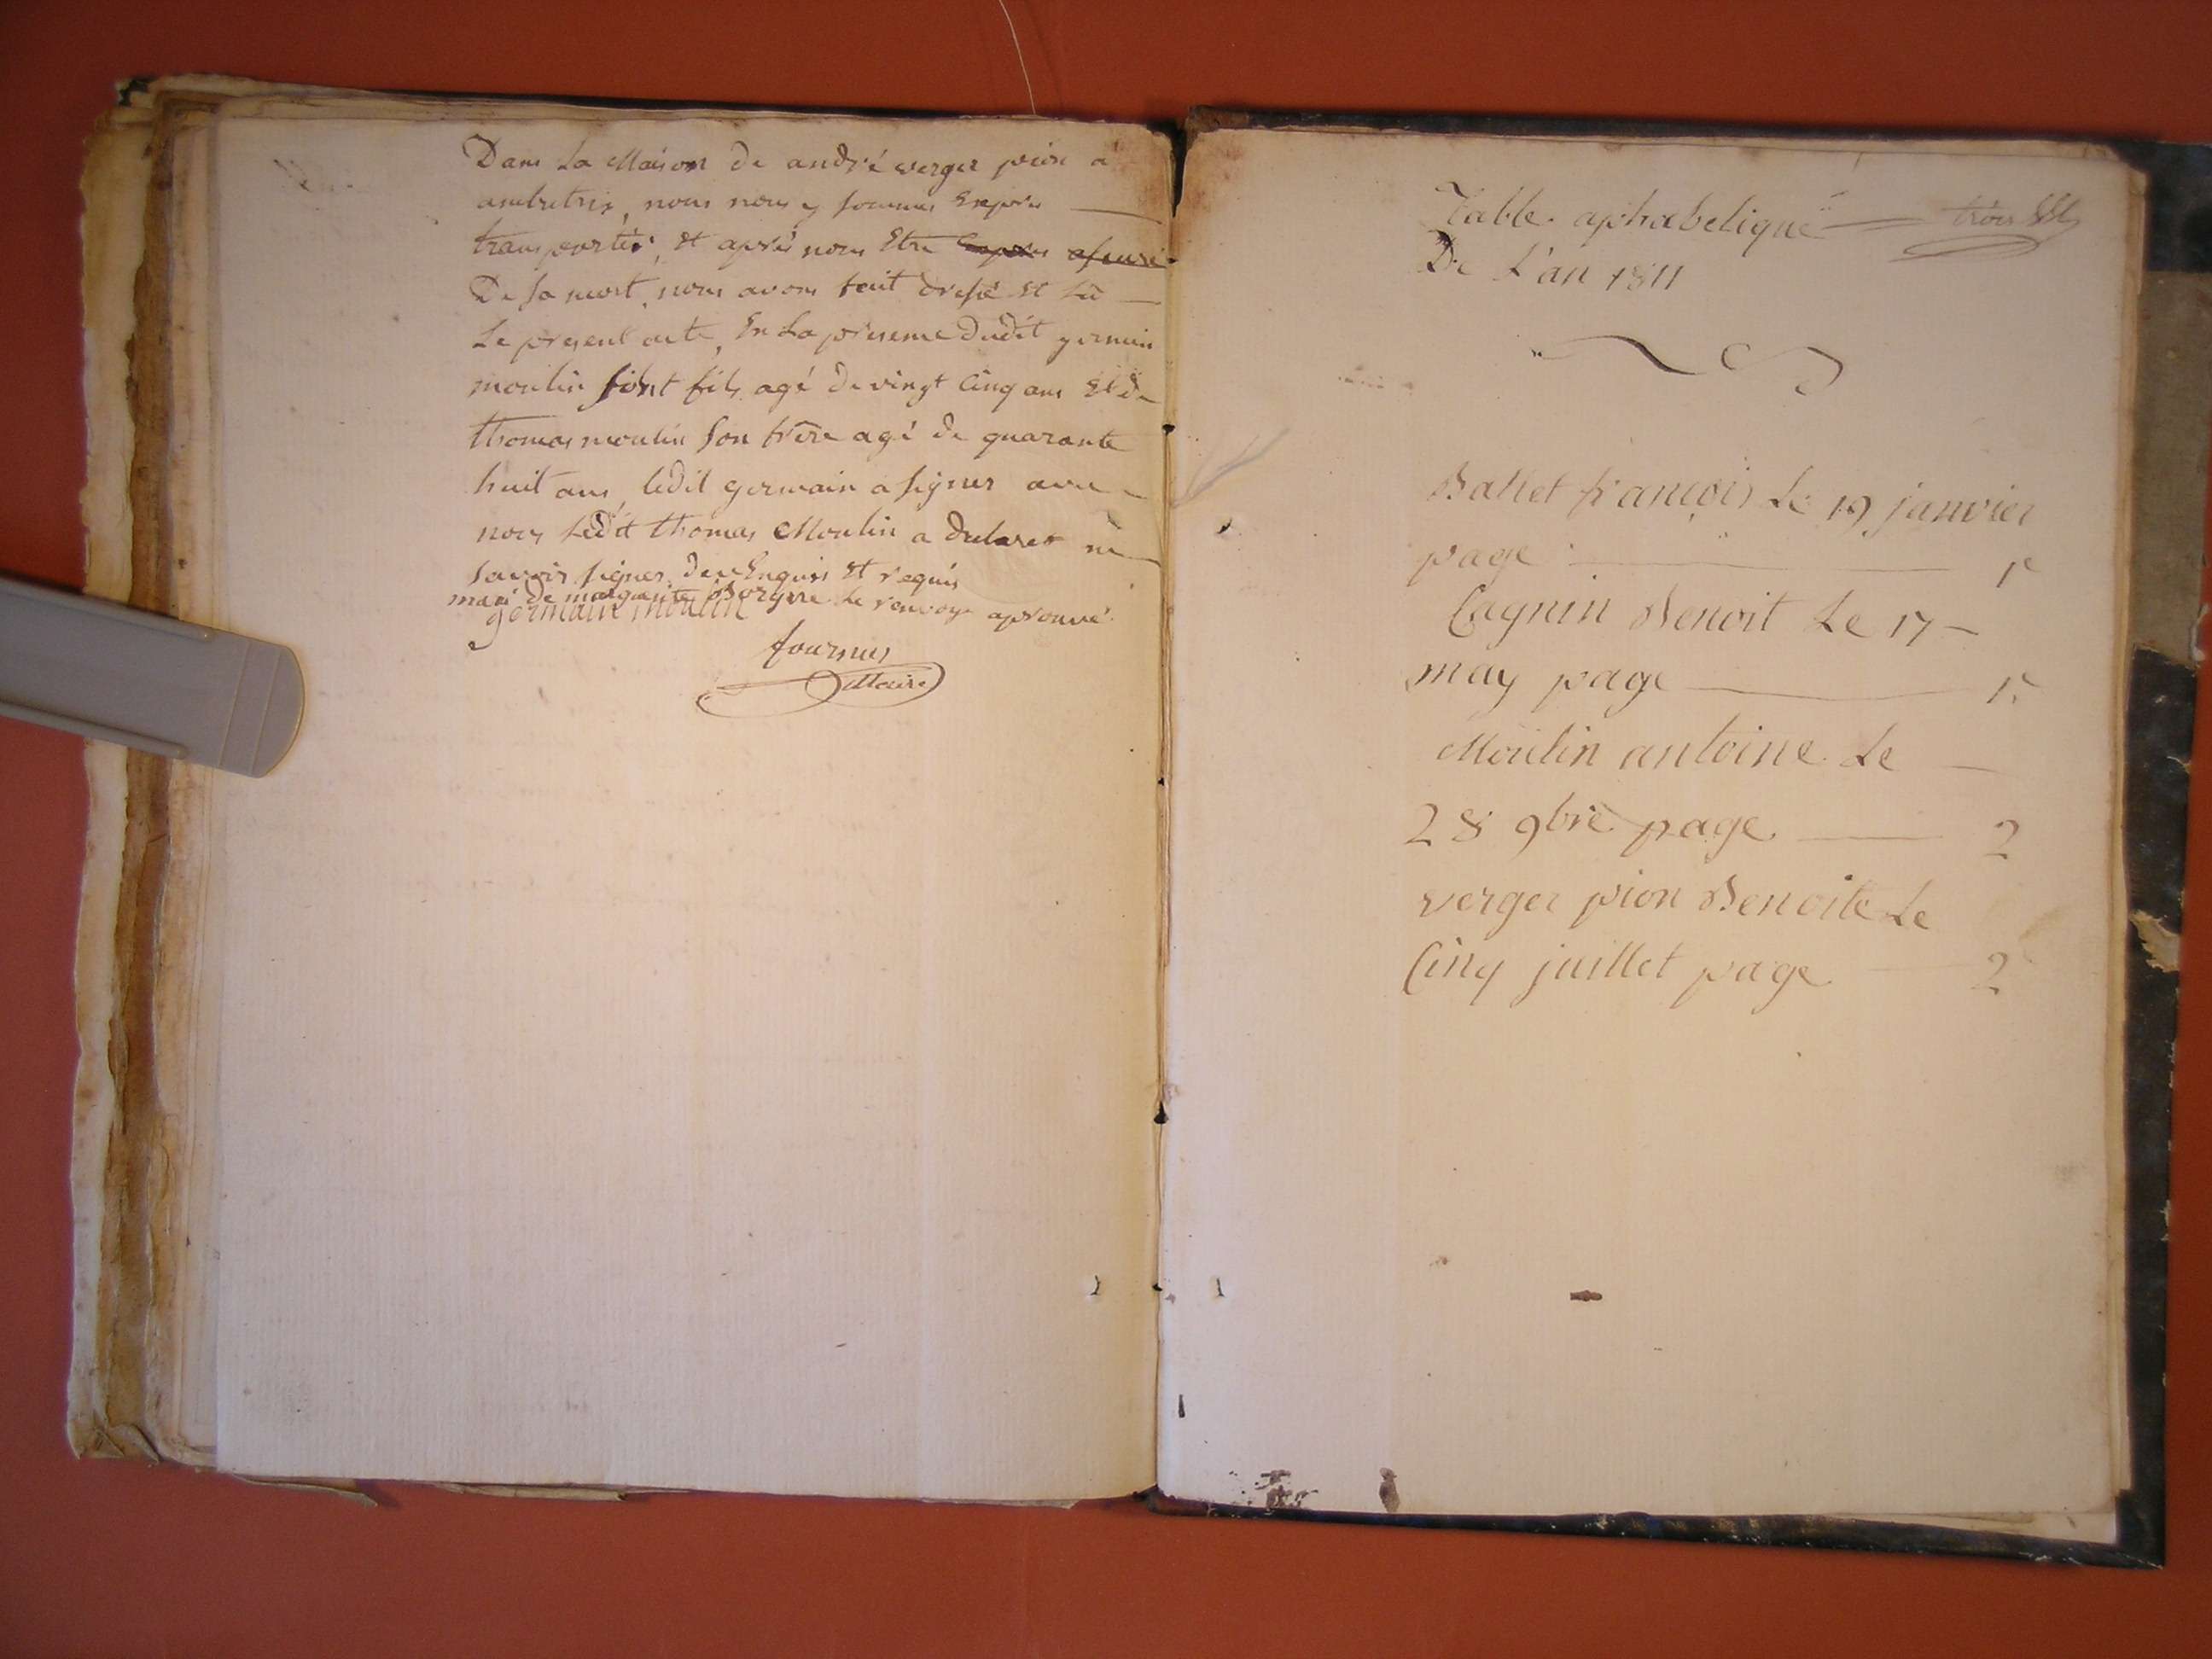 Dans La Maison de andré verger pion a
ambutrix, nous nous y sommes Exprès
transportés, et après nous Etre asuré
De sa mort, nous avons tout dressé et Lu
Le present acte, En La presence dudit germain
moulin son fils agé de vingt Cinq ans Et de
thomas moulin son frère agé de quarante
huit ans, ledit germain a signer avec
nous Ledit thomas Moulin a declarer ne
savoir signer, de ce Enquis et requis
mari de marguerite Le renvoye aprouvé
germain moulin
fournier
Maire
Table aphabetique trois
De L'an 1811
Ballet françois Le 19 janvier
page 1r
Cagnin Benoit Le 17
may page 1r
Moulin antoine Le
28 9bre page 2
verger pion Benoite Le
Cinq juillet page 2